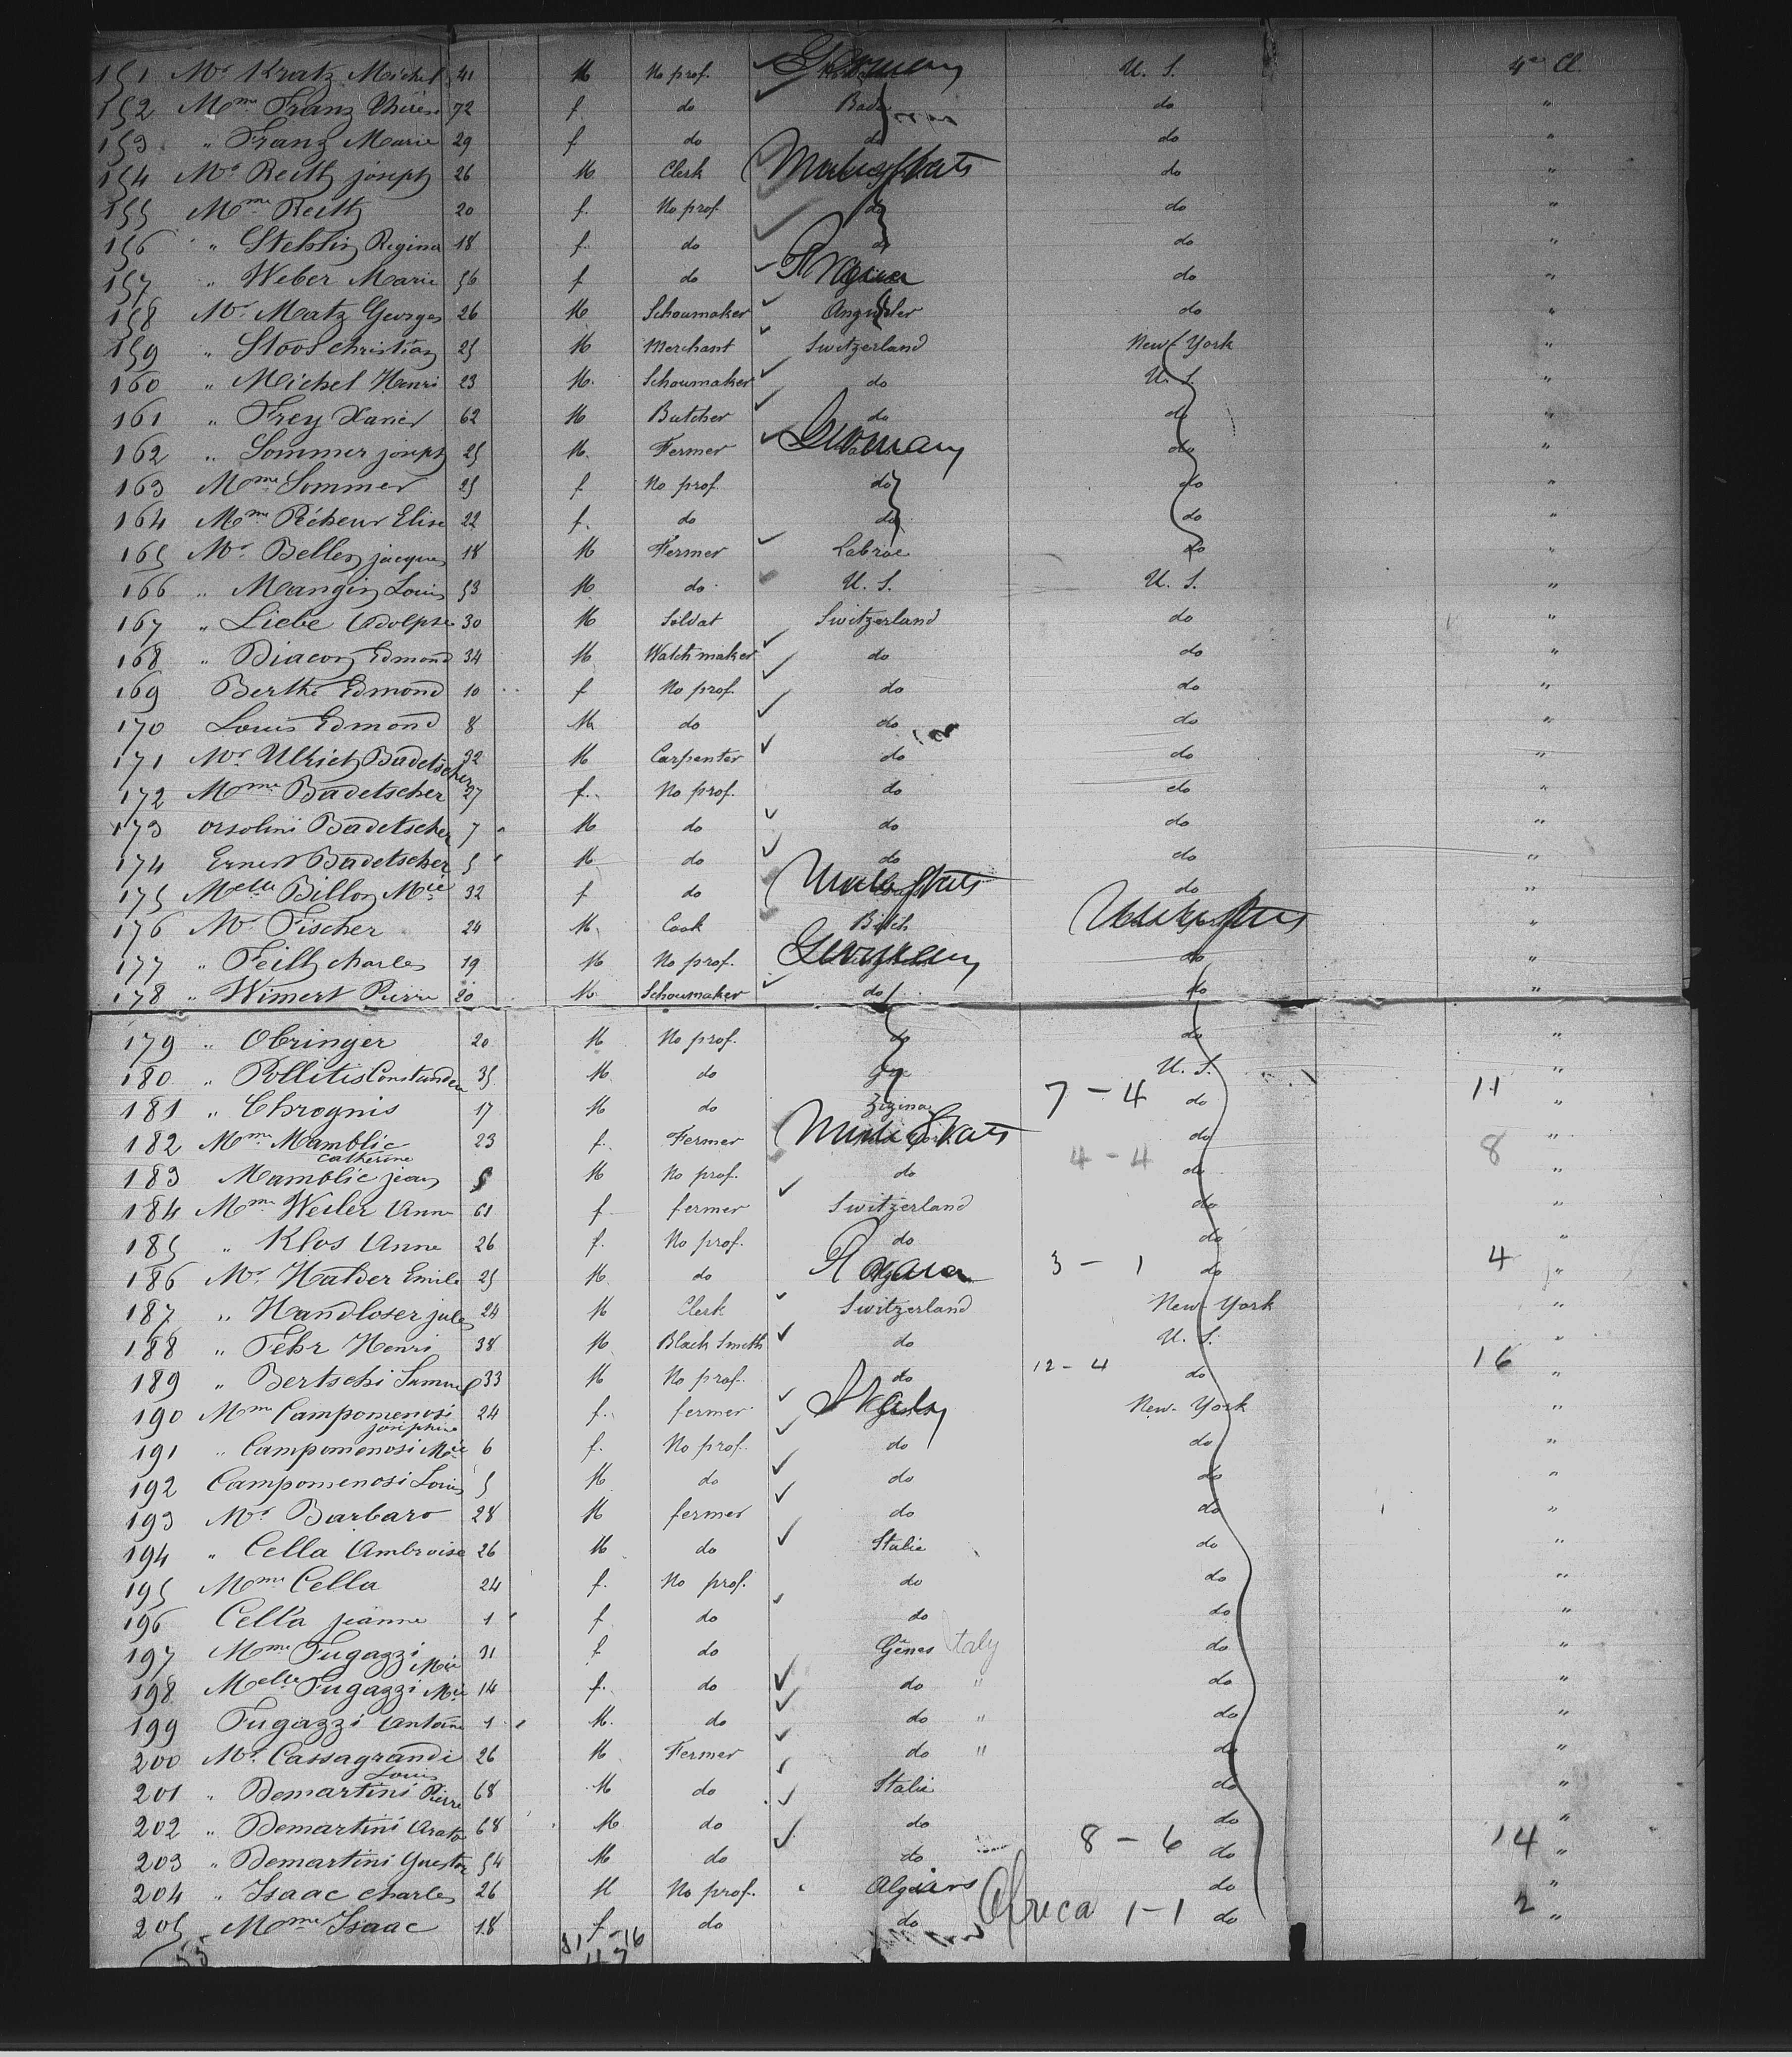 151 Mr Kratz Michel 41 M No prof. Germany U. S. 4e Cl.
152 Mme Franz Thérèse 72 f do Bade do "
153 " Franz Marie 29 f do do do "
154 Mr Reith joseph 26 M Clerk United States do "
155 Mme Reith 20 f. No prof do do "
156 " Stehlin Regina 18 f. do do do "
157 " Weber Marie 56 f do do "
158 Mr Matz Georges 26 M Schoumaker do "
159 " Stoos christian 25 M Merchant Switzerland New-York "
160 " Michel Henri 23 M. Schoumaker do U. S. "
161 " Frey Xavier 62 M Butcher do do "
162 " Sommer joseph 25 M. Fermer Germany do "
163 Mme Sommer 25 f No prof. do do "
164 Mme Pécheur Elise 22 f. do do do "
165 Mr Bellon jacques 18 M Fermer Labrie do "
166 " Mangin Louis 53 M do U. S. U. S. "
167 " Liebe Adolpse 30 M Soldat Switzerland do "
168 " Diacon Edmond 34 M Watchmaker do do "
169 Berthe Edmond 10 f No prof. do do "
170 Louis Edmond 8 M do do do "
171 Mr Ulrich Badetscher 32 M Carpenter do do "
172 Mme Badetscher 27 f. No prof. do do "
173 orsolini Badetscher 7 M do do do "
174 Ernest Badetscher 5 M do do do "
175 Melle Billon Mie 32 f do United States do "
176 Mr Fischer 24 M Cook Bitch United States "
177 " Feilh charles 19 M No prof. Germany do "
178 " Wimert Pierre 20 M Schoumaker do do "
179 " Obringer 20 M No prof. do do "
180 " Pollitis Constanden 35 M. do U. S. "
181 " Chrognis 17 M do Zizina 7 - 4 do 11 "
182 Mme Mamblic Catherine 23 f. Fermer United States do "
183 Mamblic jean 5 M No prof. do 4 - 4 do 8 "
184 Mme Weiler Anne 61 f fermer Switzerland do "
185 " Klos Anne 26 f. No prof. do do "
186 Mr Halder Emile 25 M. do 3 - 1 do 4 "
187 " Handloser jules 24 M Clerk Switzerland New-York "
188 " Fehr Henri 38 M Black Smith do U. S. "
189 " Bertschi Samuel 33 M No prof. do 12 - 4 do 16 "
190 Mme Campomenosi joséphine 24 f. fermer Italy New-York "
191 " Campomenosi Mie 6 f. No prof. do do "
192 Campomenosi Louis 5 M do do do "
193 Mr Barbaro 28 M fermer do do "
194 " Cella Ambroise 26 M do Italie do "
195 Mme Cella 24 f. No prof. do do "
196 Cella jeanne 1 f do do do "
197 Mme Fugazzi Mie 31 f do Gênes Italy do "
198 Melle Fugazzi Mie 14 f. do do " do "
199 Fugazzi Antoine 1 M. do do " do "
200 Mr Cassagrandi Louis 26 M Fermer do " do "
201 " Demartini Pierre 68 M do Italie do "
202 " Demartini Arato 68 M do do do "
203 " Demartini 54 M do do 8 - 6 do 14 "
204 " Isaac charles 26 M No prof. Algiers do "
205 Mme Isaac 18 f do do Africa 1-1 do 2 "